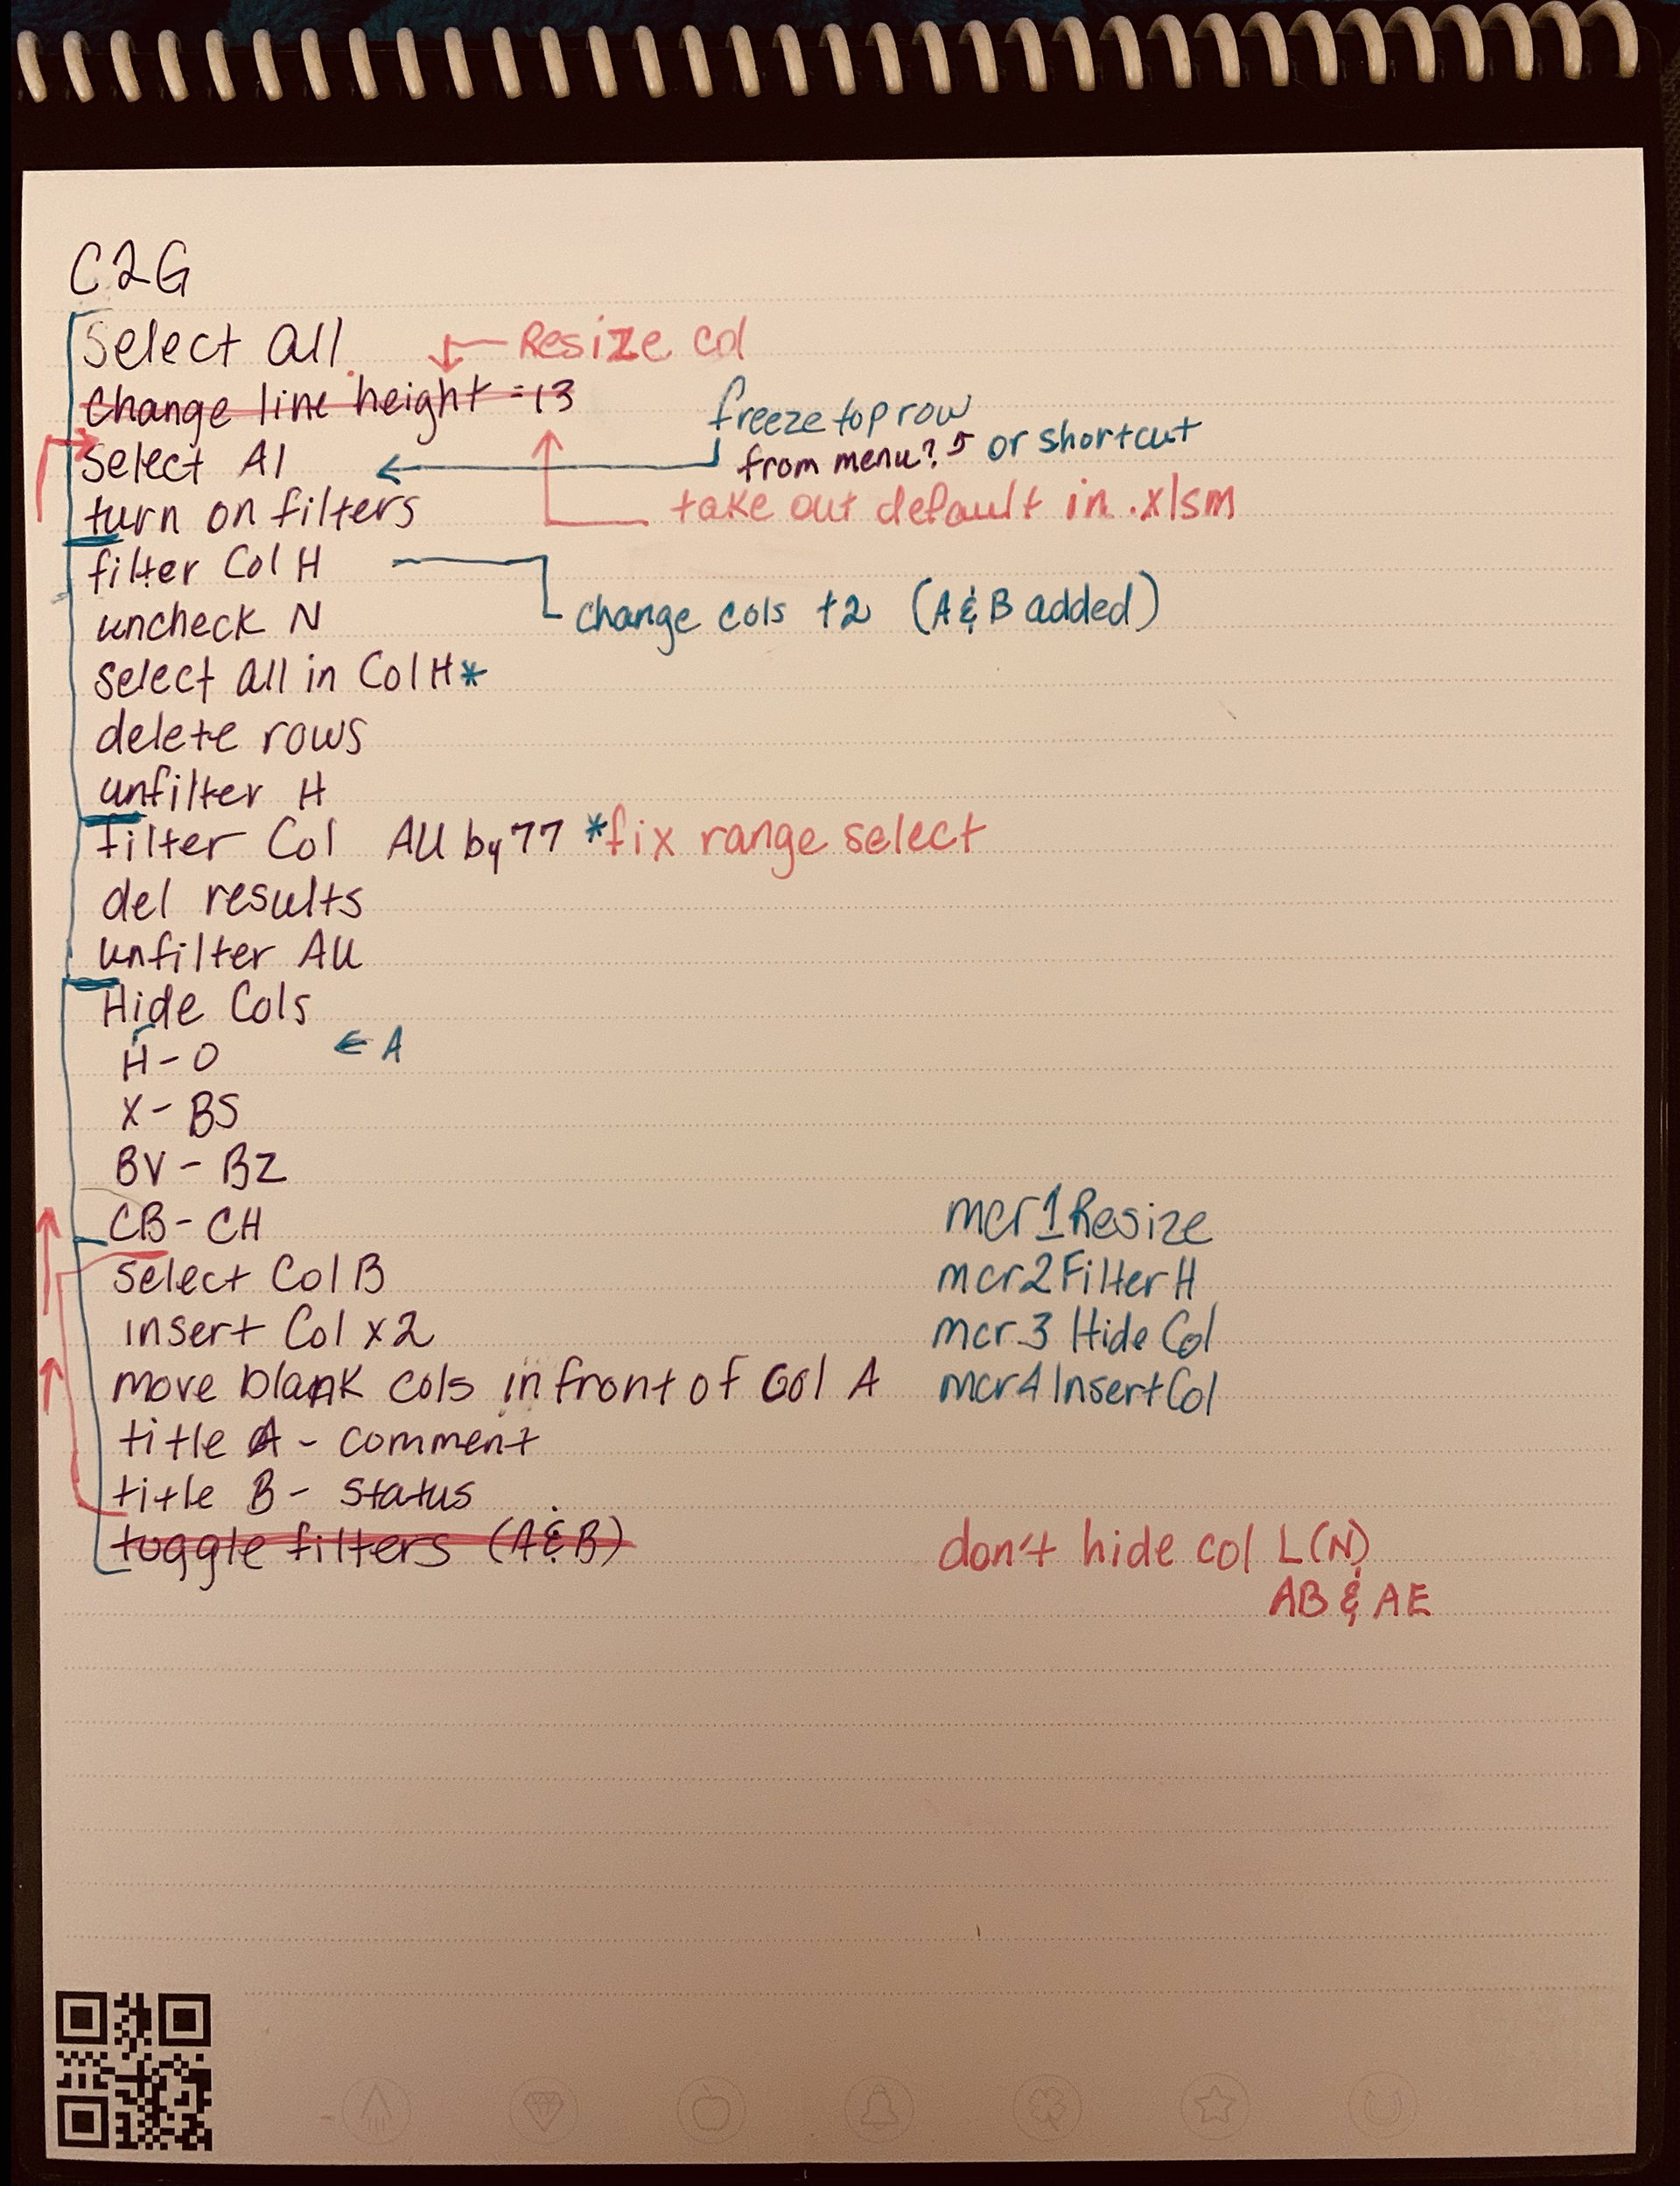 C2G
Select all
Resize col
Change line height = 13
freeze top row
Select A1
from menu? or shortcut
turn on filters
take out default in .xlsm
filter Col H
uncheck N
change cols +2 (A & B added)
select all in Col H*
delete rows
unfilter H
filter Col AU by 77 *fix range select
del results
unfilter AU
Hide Cols
H - O ← A
X - BS
BV - BZ
CB - CH
mcr1Resize
select Col B
mcr2FilterH
insert Col x2
mcr3 HideCol
move blank cols in front of Col A
mcr4InsertCol
title A - comment
title B - status
toggle filters (A & B)
don't hide col L(N)
AB & AE